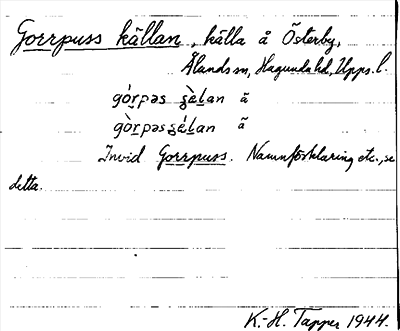 Gorrpuss källan, källa å Österby,
Ålands sn, Hagunda hd, Upps. l.
górpəs ʂὲlan ã
gòrpəsʂέlan ã
Invid Gorrpuss. Namnförklaring etc., se
detta.
K.-H. Tapper 1944.